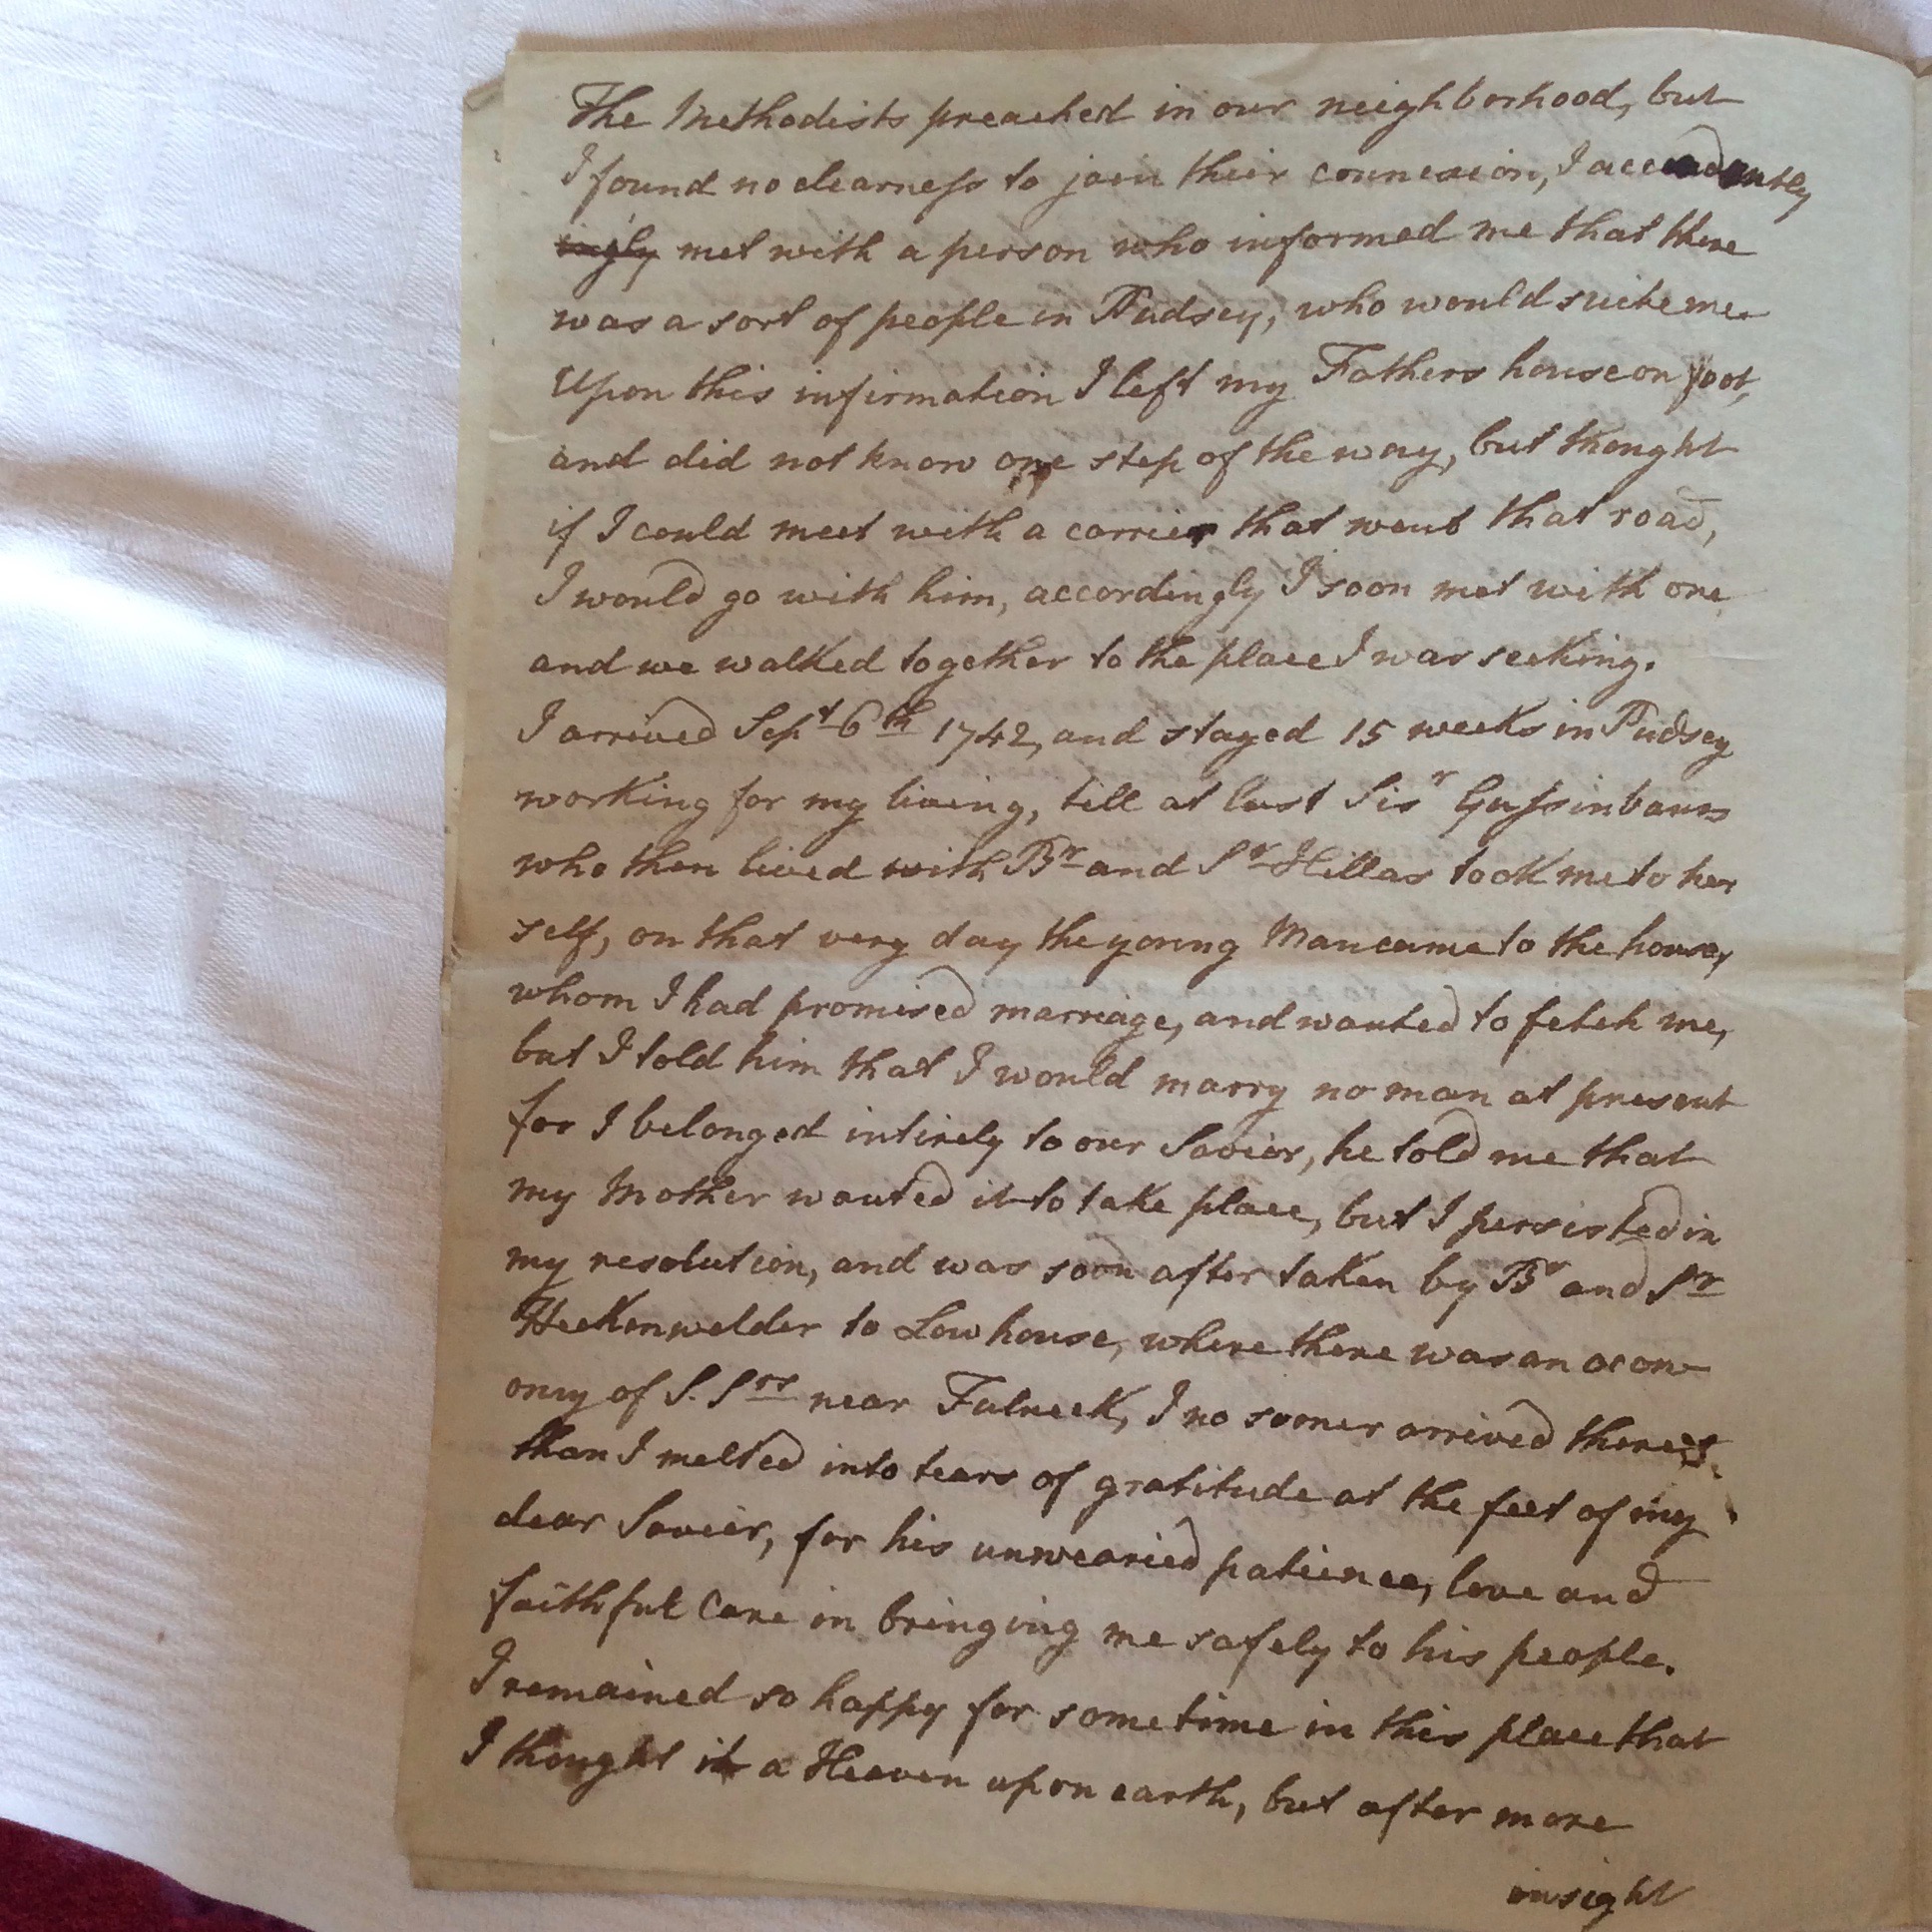 The Methodists preached in our neighborhood, but
I found no clearness to join their connexion, I accedently
ingly met with a person who informed me that there
was a sort of people in Pudsey, who would suite me.
Upon this infirmation I left my Fathers house on foot,
and did not know one step of the way, but thought
if I could meet with a carrier that went that road,
I would go with him, accordingly I soon met with one
and we walked together to the place I was seeking.
I arrived Sept 6th 1742, and stayed 15 weeks in Pudsey
working for my living, till at last Sisr Gussinbaur
who then lived with Br and Sr Hillas took me to her
self, on that very day the young Man came to the house,
whom I had promised marriage, and wanted to fetch me,
but I told him that I would marry no man at present
for I belonged intirely to our Savior, he told me that
my Mother wanted it to take place, but I persisted in
my resolution, and was soon after taken by Br and Sr
Heckenwelder to Low house, where there was an oecon-
omy of S. Srs near Fulneck, I no sooner arrived there
than I melted into tears of gratitude at the feet of my
dear Savior, for his unwearied patience, love and
faithful Care in bringing me safely to his people.
I remained so happy for sometime in this place that
I thought it a Heaven upon earth, but after more
insight